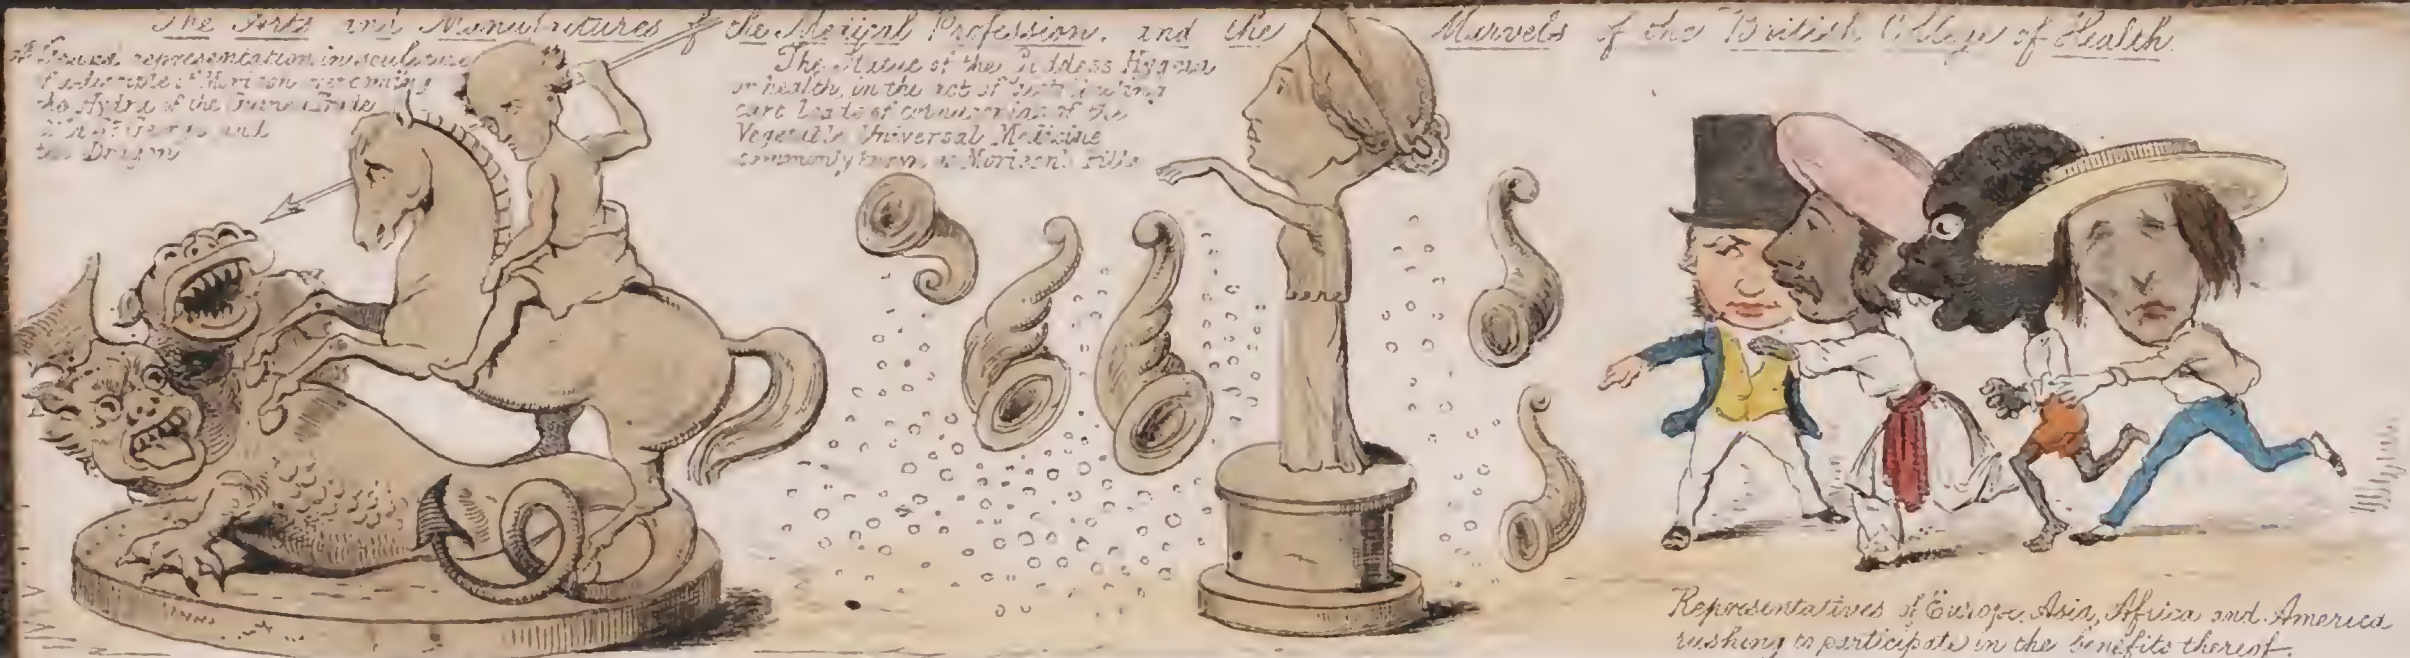 The Arts and Manufactures of the Medical Profession, and the Marvels of the British College of Health.
A Grand representation in sculpture
of a disciple of Morison overcoming
the Hydra of the
St George and
the Dragon
The Statue of the Goddess Hygeia
or health, in the act of distributing
cart loads of cornucopias of the
Vegetable Universal Medicine
commonly known as Morison's Pills
Representatives of Europe, Asia, Africa and America
rushing to participate in the benefits thereof.